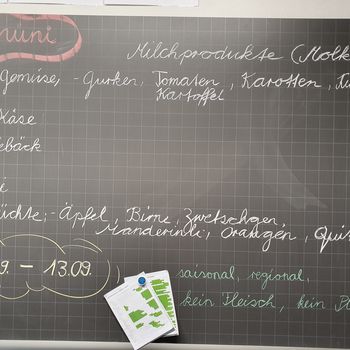 nüni
Milchprodukte (Molk
Gemüse, - Gurken, Tomaten, Karotten,
Kartoffel
Käse
ebäck
i
üchte, - Äpfel, Birne, Zwetschgen,
Manderinli, Orangen, Qui
9. - 13.09.
saisonal, regional,
kein Fleisch, kein